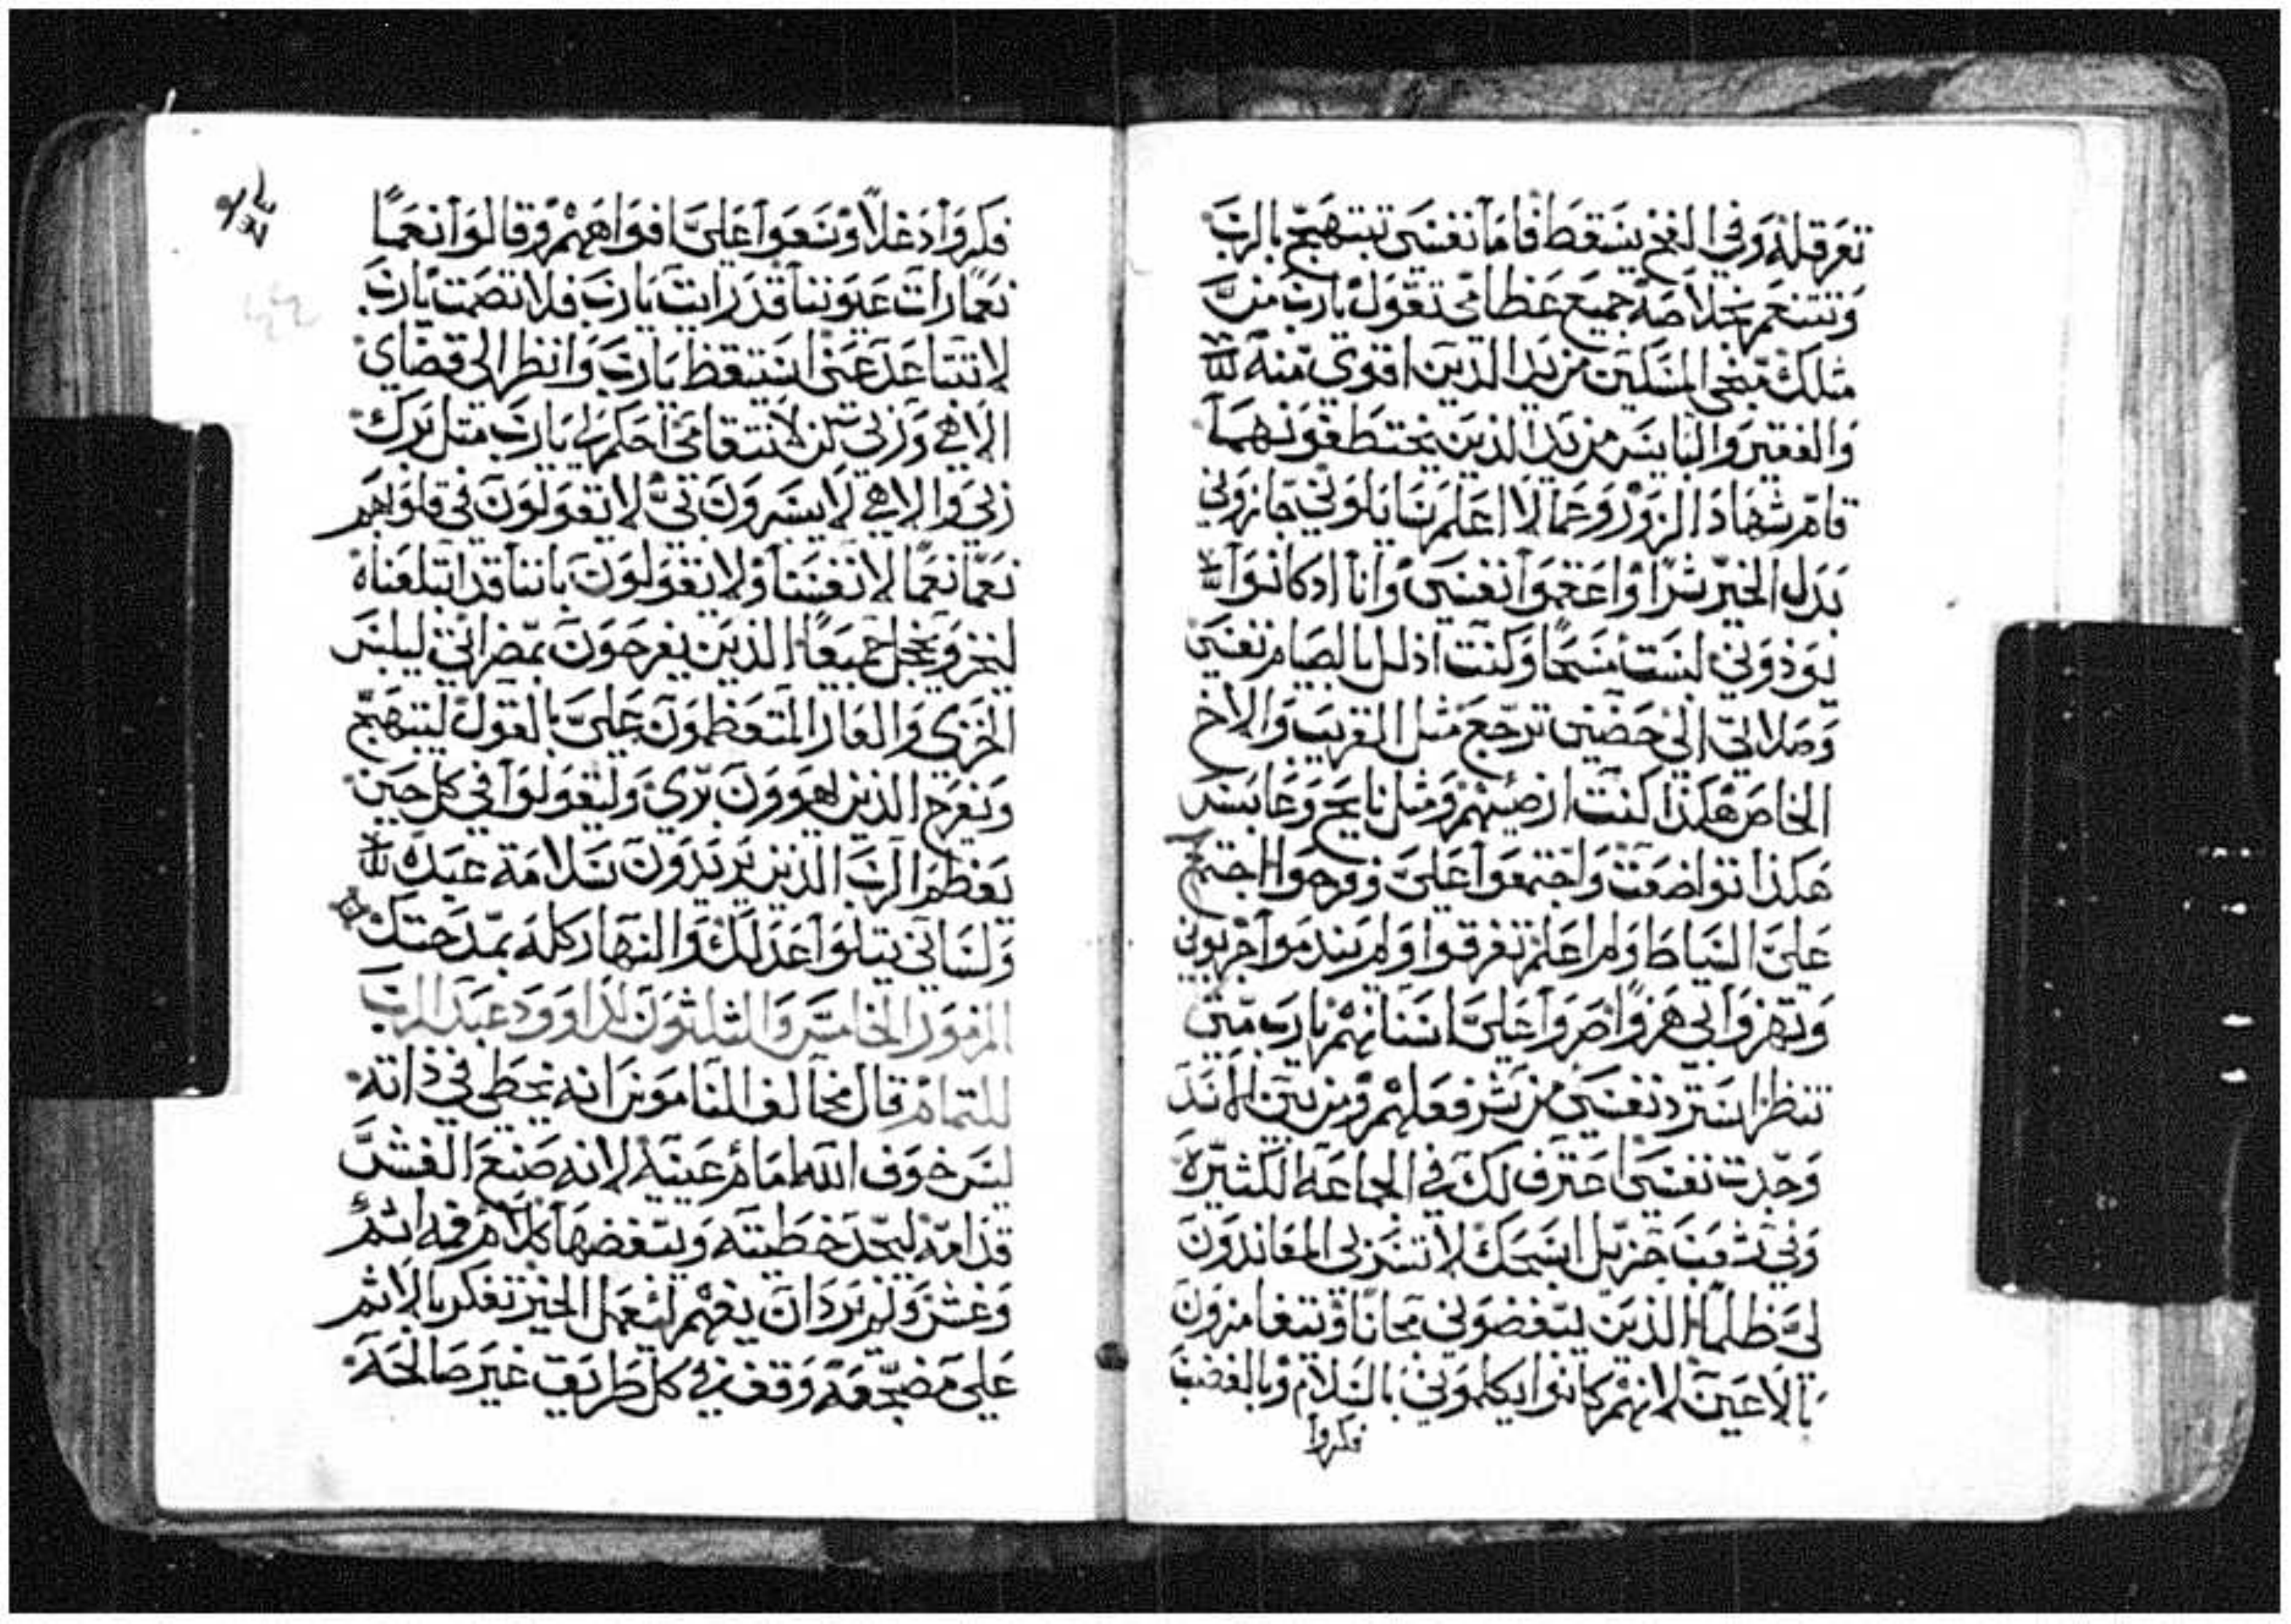 تعرقله وفي الفخ يسقط فاما نفسي تبتهج بالرب
وتتنعم بخلاصه جميع عظامي تقول يارب من
مثلك منجي المسكين من يد الذين اقوي منه
والفقير والبايس من يد الذين يختطفونهما
قام شهاد الزور وعما لا اعلم سايلوني جازوني
بدل الخير شرا واعقموا نفسي وانا اد كانوا
يوذوني لبست مسحا وكنت اذلل بالصيام نفسي
وصلاتي الي حضني ترجع مثل القريب والاخ
الخاص هكذا كنت ارضيهم ومثل نايح وعابس
هكذا تواضعت واجتمعوا علي وفرحوا اجتمع
علي السياط ولم اعلم تفرقوا ولم يندموا جربوني
وتهزوا بي هزوا صروا علي اسنانهم يارب متي
تنظر استرد نفسي من شر فعلهم ومن بين الاسد
وحدت نفسي اعترف لك في الجماعة الكثيرة
وفي شعب جزيل اسبحك لا تسر بي المعاندون
لي ظلما الذين يبغضوني مجانا ويتغامزون
بالاعين لانهم كانوا يكلموني بالسلام وبالغضب
فكروا
فكروا دغلا وسعوا علي افواههم وقالوا نعما
نعما رات عيوننا قد رايت يارب فلا تصمت يارب
لا تتباعد عني استيقظ يارب وانظر الي قضاي
الاهي وربي كن لانتقامي احكم لي يارب مثل برك
ربي والاهي لا يسرون بي لا يقولون في قلوبهم
نعما نعما لانفسنا ولا يقولون باننا قد ابتلعناه
ليخز ويخجل جميعا الذين يفرحون بمضراتي ليلبس
الخزي والعار المتعظمون علي بالقول ليبتهج
ويفرح الذين يهوون بري وليقولوا في كل حين
يعظم الرب الذين يريدون سلامة عبده
ولساني يتلوا عدلك والنهار كله بمدحتك
المزمور الخامس والثلثون لداوود عبد الرب
للتمام قال مخالف الناموس انه يخطي في ذاته
ليس خوف الله امام عينيه لانه صنع الغش
قدامه ليجد خطيته ويبغضها كلام فمه اثم
وغش ولم يرد ان يفهم ليعمل الخير تفكر بالاثم
علي مضجعه وقف في كل طريق غير صالحه